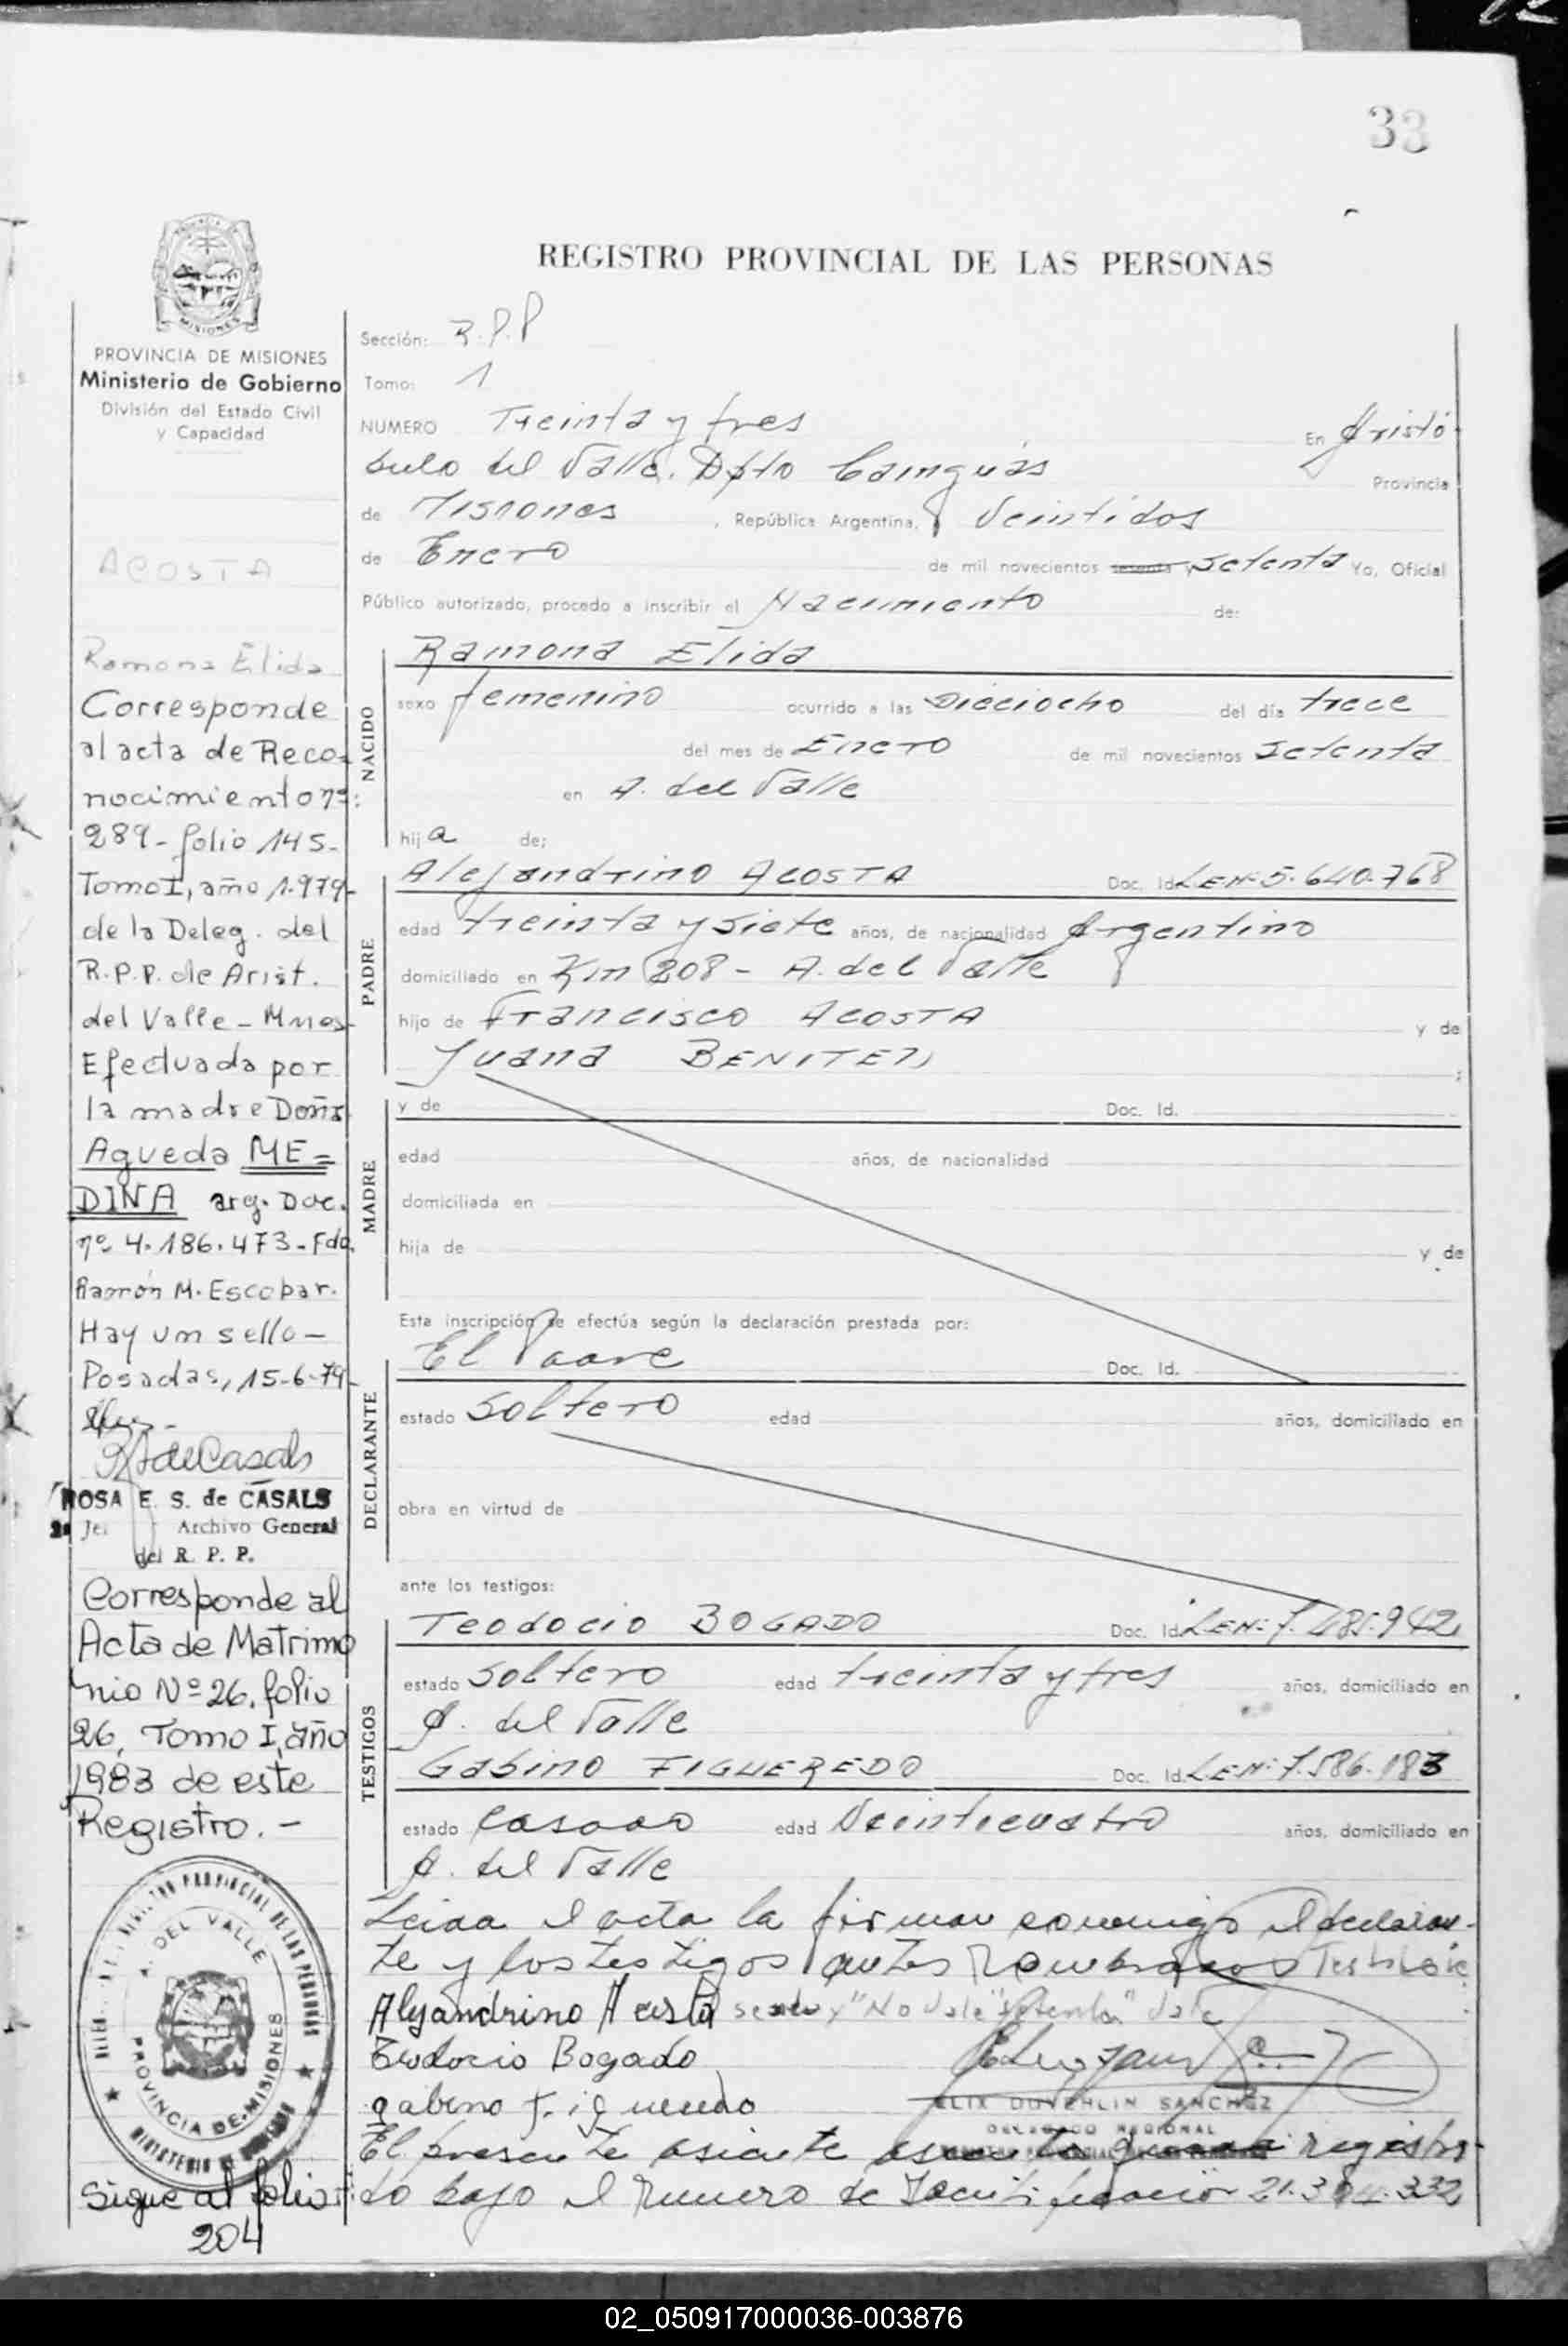 33
REGISTRO PROVINCIAL DE LAS PERSONAS
MISIONES
PROVINCIA DE MISIONES
Ministerio de Gobierno
División del Estado Civil
y Capacidad
ACOSTA
Ramona Elida
Corresponde
al acta de Reco-
nocimiento nº:
289- folio 145-
Tomo I, año 1.979-
de la Deleg. del
R.P.P. de Arist.
del Valle - Mnes-
Efectuada por
la madre Doña
Agueda ME=
DINA arg. Doc.
nº 4.186.473-Fdo.
Ramón M. Escobar.
Hay un sello-
Posadas, 15-6-79-
ROSA E. S. de CASALS
Archivo General
del R. P. P.
Corresponde al
Acta de Matrimo
nio Nº 26, folio
26, Tomo I, año
1983 de este
Registro.-
A. DEL VALLE
PROVINCIA DE MISIONES
Sigue al folio
204
Sección: R.P.P
Tomo: 1
NUMERO Treinta y tres En Aristó-
bulo del Valle. Dpto Cainguás Provincia
de Misiones, República Argentina, a Veintidos
de Enero de mil novecientos sesenta y setenta Yo, Oficial
Público autorizado, procedo a inscribir el Nacimiento de:
NACIDO
Ramona Elida
sexo femenino ocurrido a las Dieciocho del día trece
del mes de Enero de mil novecientos Setenta
en A. del Valle
hij a de;
PADRE
Alejandrino ACOSTA Doc. Id. LEN-5.640.768
edad treinta y siete años, de nacionalidad Argentino
domiciliado en Km 208 - A. del Valle
hijo de Francisco ACOSTA y de
Juana BENITEZ ;
MADRE
y de Doc. Id.
edad años, de nacionalidad
domiciliada en
hija de y de
Esta inscripción se efectúa según la declaración prestada por:
DECLARANTE
El Padre Doc. Id.
estado Soltero edad años, domiciliado en
obra en virtud de
ante los testigos:
TESTIGOS
Teodocio BOGADO Doc. Id. LEN-7.485.942
estado Soltero edad treinta y tres años, domiciliado en
A. del Valle
Gabino FIGUEREDO Doc. Id. LEN-7.586.183
estado Casado edad Veinticuatro años, domiciliado en
A. del Valle
Leida el acta la firman conmigo el declaran-
te y los testigos antes nombrados
Alejandrino Acosta "No Vale" "Setenta" Vale
Teodocio Bogado
gabino figueredo
SANCHEZ
DELEGADO REGIONAL
El presente asiento registra-
do bajo el Número de Identificación 21.304.332
02_050917000036-003876